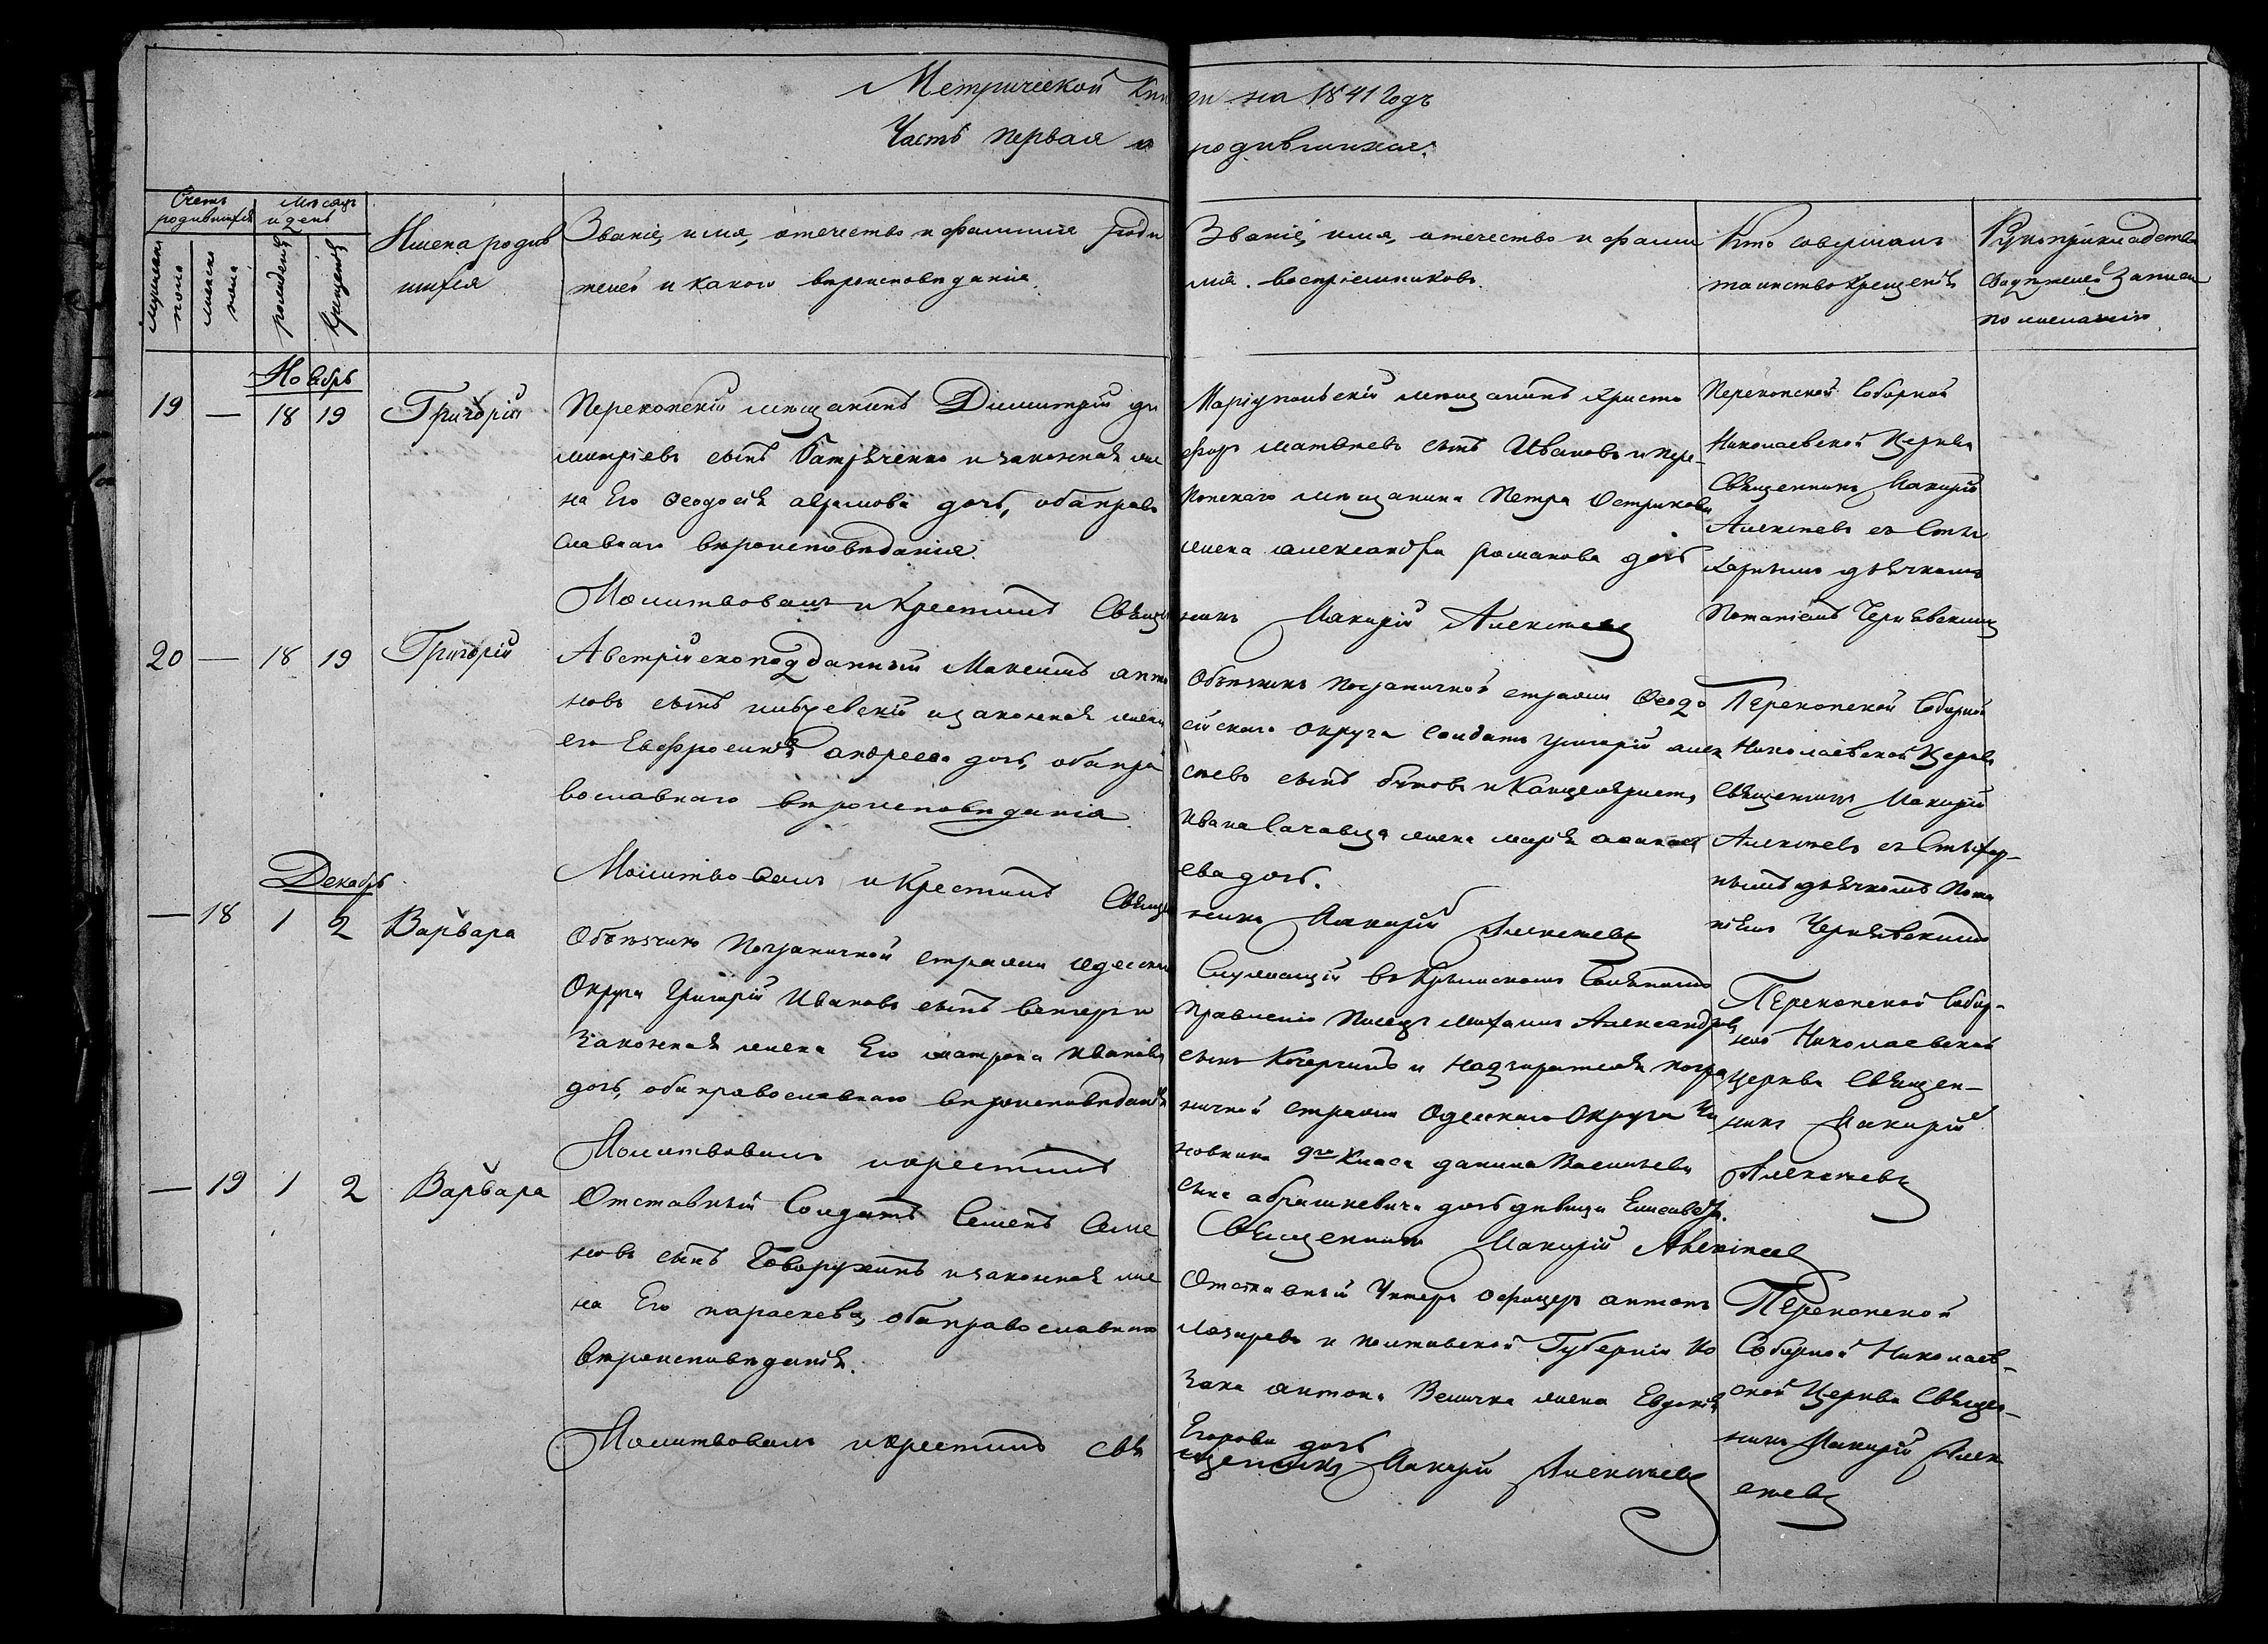 Метрической Книги на 1841 Годъ
Часть первая о родившихся.
Счетъ родившихся
Мѣсяцъ и день
мужеска пола
женска пола
рожденія
крещенія
Имена родив
шихся
Званіе, имя, отечество и фамилія роди
телей и какого вѣроисповѣданія.
Званіе, имя, отечество и фами
лія воспріемниковъ.
Кто совершалъ
таинство крещенія
Рукоприкладство
свидѣтелей записи
по желанію
Ноябрь
19 — 18 19 Григорій
Перекопскій мѣщанинъ Димитрій ди
митріевъ сынъ и законная же
на Его Феодосія аврамова дочь, оба право
славнаго вѣроисповѣданія.
Маріупольскій мѣщанинъ Христо
форъ матвѣевъ сынъ Ивановъ и пере-
копскаго мѣщанина Петра Острикова
жена александра романова дочь
Перекопской Соборной
Николаевской Церкви
Священникъ Макарій
Алексѣевъ съ Стих
харнымъ дьячкомъ
Потапіемъ Чернявскимъ
Молитвовалъ и Крестилъ Священникъ Макарій Алексѣевъ
20 — 18 19 Григорій
Австрійско подданный Максимъ анто
новъ сынъ и законная жена
его Евфросинія андреева дочь, оба пра
вославнаго вѣроисповѣданія.
Объѣзчикъ пограничной стражи Феодо
сійскаго округа Солдатъ Григорій алек
сѣевъ сынъ быковъ и Канцеляриста
Ивана жена марія
ева дочь.
Перекопской Соборной
Николаевской Церкви
Священникъ Макарій
Алексѣевъ съ Стихар-
нымъ дьячкомъ Пота
піемъ Чернявскимъ
Молитвовалъ и Крестилъ Священникъ Макарій Алексѣевъ
Декабрь
— 18 1 2 Варвара
Объѣзчикъ Пограничной стражи Одесскаго
Округа Григорій Ивановъ сынъ венгеръ и
Законная жена Его матрона иванова
дочь, оба православнаго вѣроисповѣданія
Служащій въ Крымскомъ Солѣномъ
Правленіи Писецъ михаилъ Александровъ
сынъ Кочергинъ и надзирателя погра
ничной стражи Одесскаго Округа Чи
новника 9го Класа данила Васильева
сына абрашкевича дочь дѣвица Елисавета.
Перекопской Собор-
ной Николаевской
церкви Священ-
никъ Макарій
Алексѣевъ
Молитвовалъ и крестилъ Священникъ Макарій Алексѣевъ
— 19 1 2 Варвара
Отставный Солдатъ Семенъ Семе
новъ сынъ Говорухинъ и законная же
на Его параскева, оба православнаго
вѣроисповѣданія.
Отставный Унтеръ офицеръ антонъ
лазаревъ и полтавской Губерніи Ко
зака антона Величка жена Евдокія
Егорова дочь
Перекопской
Соборной Николаев-
ской Церкви Священ-
никъ Макарій Алек
сѣевъ
Молитвовалъ и крестилъ свя
щенникъ Макарій Алексѣевъ